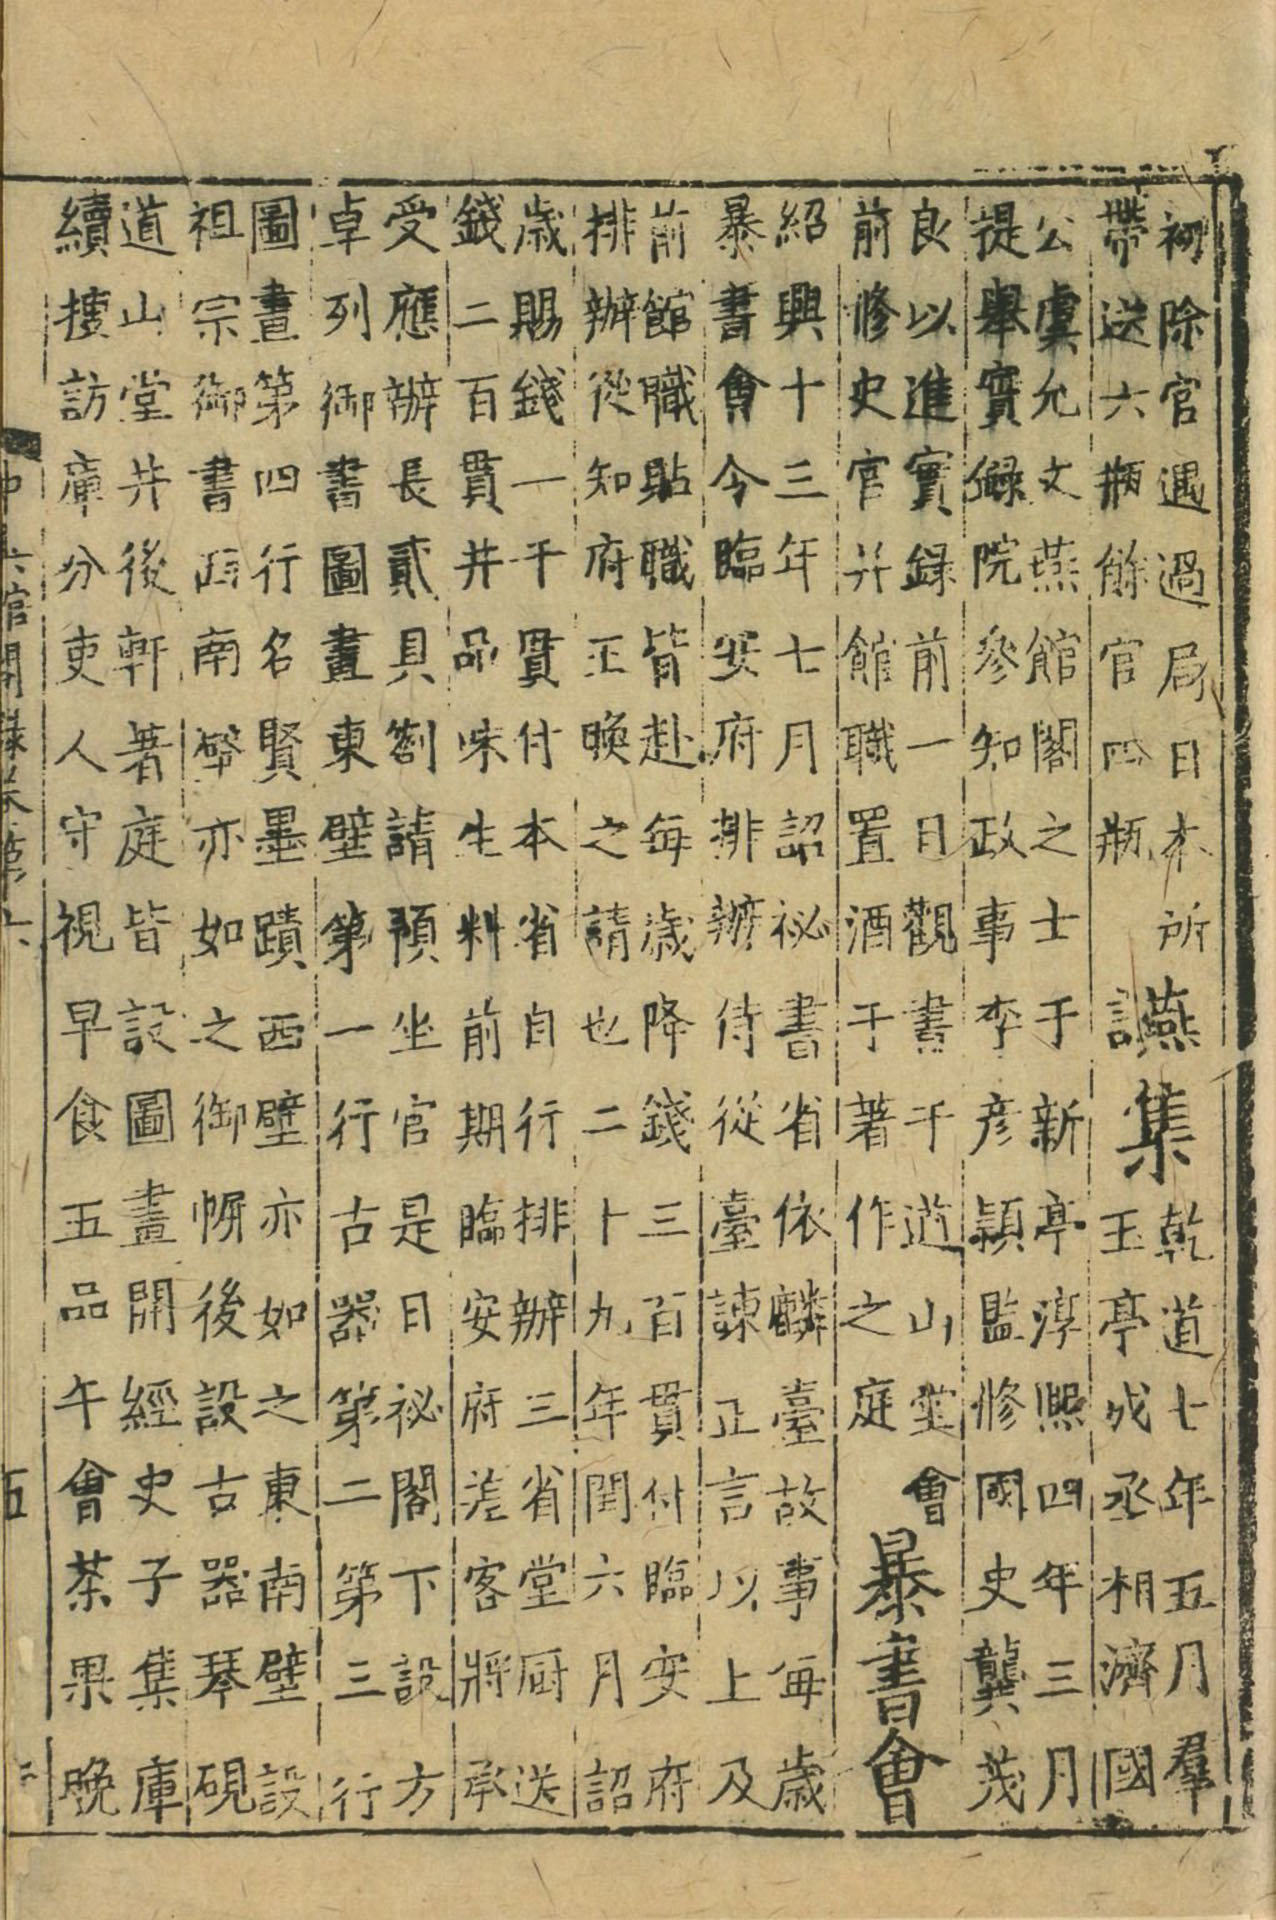 初除官遇過局日本所
帶送六瓶餘官四瓶
讌集
乾道七年五月羣
玉亭成丞相濟國
公虞允文燕館閣之士于新亭淳熙四年三月
提舉實録院參知政事李彦穎監修國史龔茂
良以進實録前一日觀書于道山堂會
前修史官并館職置酒于著作之庭
暴書會
紹興十三年七月詔祕書省依麟臺故事每歲
暴書會令臨安府排辦侍從臺諫正言以上及
前館職貼職皆赴每歲降錢三百貫付臨安府
排辦從知府王㬇之請也二十九年閏六月詔
歲賜錢一千貫付本省自行排辦三省堂厨送
錢二百貫并品味生料前期臨安府差客將承
受應辦長貳具劄請預坐官是日祕閣下設方
卓列御書圖畫東壁第一行古器第二第三行
圖畫第四行名賢墨蹟西壁亦如之東南壁設
祖宗御書西南壁亦如之御幈後設古器琴硯
道山堂并後軒著庭皆設圖畫開經史子集庫
續搜訪庫分吏人守視早食五品午會茶果晚
館閣録卷第六
五